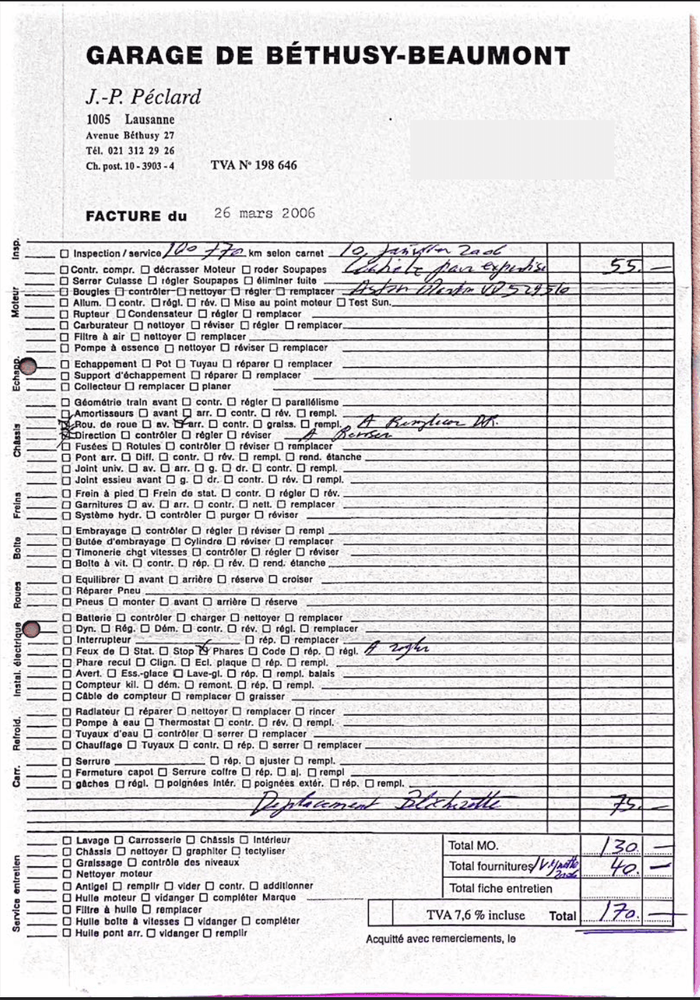 GARAGE DE BÉTHUSY-BEAUMONT
J.-P. Péclard
1005 Lausanne
Avenue Béthusy 27
Tél. 021 312 29 26
Ch. post. 10 - 3903 - 4 TVA N° 198 646
FACTURE du 26 mars 2006
Insp.
☐ Inspection / service 100 770 km selon carnet 10 janvier 2006
Moteur
☐ Contr. compr. ☐ décrasser Moteur ☐ roder Soupapes pour expertise 55.—
☐ Serrer Culasse ☐ régler Soupapes ☐ éliminer fuite
☐ Bougies ☐ contrôler ☐ nettoyer ☐ régler ☐ remplacer Aston Martin
☐ Allum. ☐ contr. ☐ régl. ☐ rév. ☐ Mise au point moteur ☐ Test Sun.
☐ Rupteur ☐ Condensateur ☐ régler ☐ remplacer
☐ Carburateur ☐ nettoyer ☐ réviser ☐ régler ☐ remplacer
☐ Filtre à air ☐ nettoyer ☐ remplacer
☐ Pompe à essence ☐ nettoyer ☐ réviser ☐ remplacer
Echapp.
☐ Echappement ☐ Pot ☐ Tuyau ☐ réparer ☐ remplacer
☐ Support d'échappement ☐ réparer ☐ remplacer
☐ Collecteur ☐ remplacer ☐ planer
Châssis
☐ Géométrie train avant ☐ contr. ☐ régler ☐ parallélisme
☐ Amortisseurs ☐ avant ☐ arr. ☐ contr. ☐ rév. ☐ rempl.
☒ Rou. de roue ☐ av. ☒ arr. ☐ contr. ☐ graiss. ☐ rempl. A Remplacer DR.
☒ Direction ☐ contrôler ☐ régler ☐ réviser A Reviser
☐ Fusées ☐ Rotules ☐ contrôler ☐ réviser ☐ remplacer
☐ Pont arr. ☐ Diff. ☐ contr. ☐ rév. ☐ rempl. ☐ rend. étanche
☐ Joint univ. ☐ av. ☐ arr. ☐ g. ☐ dr. ☐ contr. ☐ rempl.
☐ Joint essieu avant ☐ g. ☐ dr. ☐ contr. ☐ rév. ☐ rempl.
Freins
☐ Frein à pied ☐ Frein de stat. ☐ contr. ☐ régler ☐ rév.
☐ Garnitures ☐ av. ☐ arr. ☐ contr. ☐ nett. ☐ remplacer
☐ Système hydr. ☐ contrôler ☐ purger ☐ réviser
Boîte
☐ Embrayage ☐ contrôler ☐ régler ☐ réviser ☐ rempl
☐ Butée d'embrayage ☐ Cylindre ☐ réviser ☐ remplacer
☐ Timonerie chgt vitesses ☐ contrôler ☐ régler ☐ réviser
☐ Boîte à vit. ☐ contr. ☐ rép. ☐ rév. ☐ rend. étanche
Roues
☐ Equilibrer ☐ avant ☐ arrière ☐ réserve ☐ croiser
☐ Réparer Pneu
☐ Pneus ☐ monter ☐ avant ☐ arrière ☐ réserve
Instal. électrique
☐ Batterie ☐ contrôler ☐ charger ☐ nettoyer ☐ remplacer
☐ Dyn. ☐ Rég. ☐ Dém. ☐ contr. ☐ rév. ☐ régl. ☐ remplacer
☐ Interrupteur ☐ rép. ☐ remplacer
☐ Feux de ☐ Stat. ☐ Stop ☒ Phares ☐ Code ☐ rép. ☐ régl. A régler
☐ Phare recul ☐ Clign. ☐ Ecl. plaque ☐ rép. ☐ rempl.
☐ Avert. ☐ Ess.-glace ☐ Lave-gl. ☐ rép. ☐ rempl. balais
☐ Compteur kil. ☐ dém. ☐ remont. ☐ rép. ☐ rempl.
☐ Câble de compteur ☐ remplacer ☐ graisser
Refroid.
☐ Radiateur ☐ réparer ☐ nettoyer ☐ remplacer ☐ rincer
☐ Pompe à eau ☐ Thermostat ☐ contr. ☐ rév. ☐ rempl.
☐ Tuyaux d'eau ☐ contrôler ☐ serrer ☐ remplacer
☐ Chauffage ☐ Tuyaux ☐ contr. ☐ rép. ☐ serrer ☐ remplacer
Carr.
☐ Serrure ☐ rép. ☐ ajuster ☐ rempl.
☐ Fermeture capot ☐ Serrure coffre ☐ rép. ☐ aj. ☐ rempl
☐ gâches ☐ régl. ☐ poignées intér. ☐ poignées extér. ☐ rép. ☐ rempl.
Deplacement Blécherette 75.—
Service entretien
☐ Lavage ☐ Carrosserie ☐ Châssis ☐ Intérieur
☐ Châssis ☐ nettoyer ☐ graphiter ☐ tectyliser
☐ Graissage ☐ contrôle des niveaux
☐ Nettoyer moteur
☐ Antigel ☐ remplir ☐ vider ☐ contr. ☐ additionner
☐ Huile moteur ☐ vidanger ☐ compléter Marque
☐ Filtre à huile ☐ remplacer
☐ Huile boîte à vitesses ☐ vidanger ☐ compléter
☐ Huile pont arr. ☐ vidanger ☐ remplir
Total MO. 130.—
Total fournitures 40.—
Total fiche entretien
TVA 7,6 % incluse Total 170.—
Acquitté avec remerciements, le